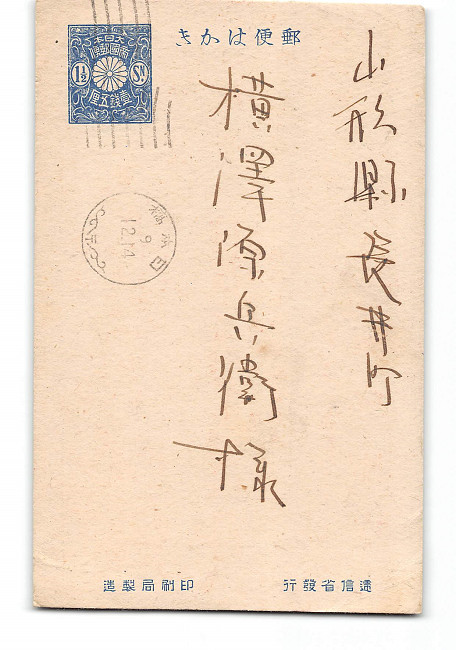 郵便はかき
大日本
帝國郵便
1½ SN.
壹錢五厘
山形縣長井町
横澤源兵衛様
9
12.14
遞信省發行
印刷局製造